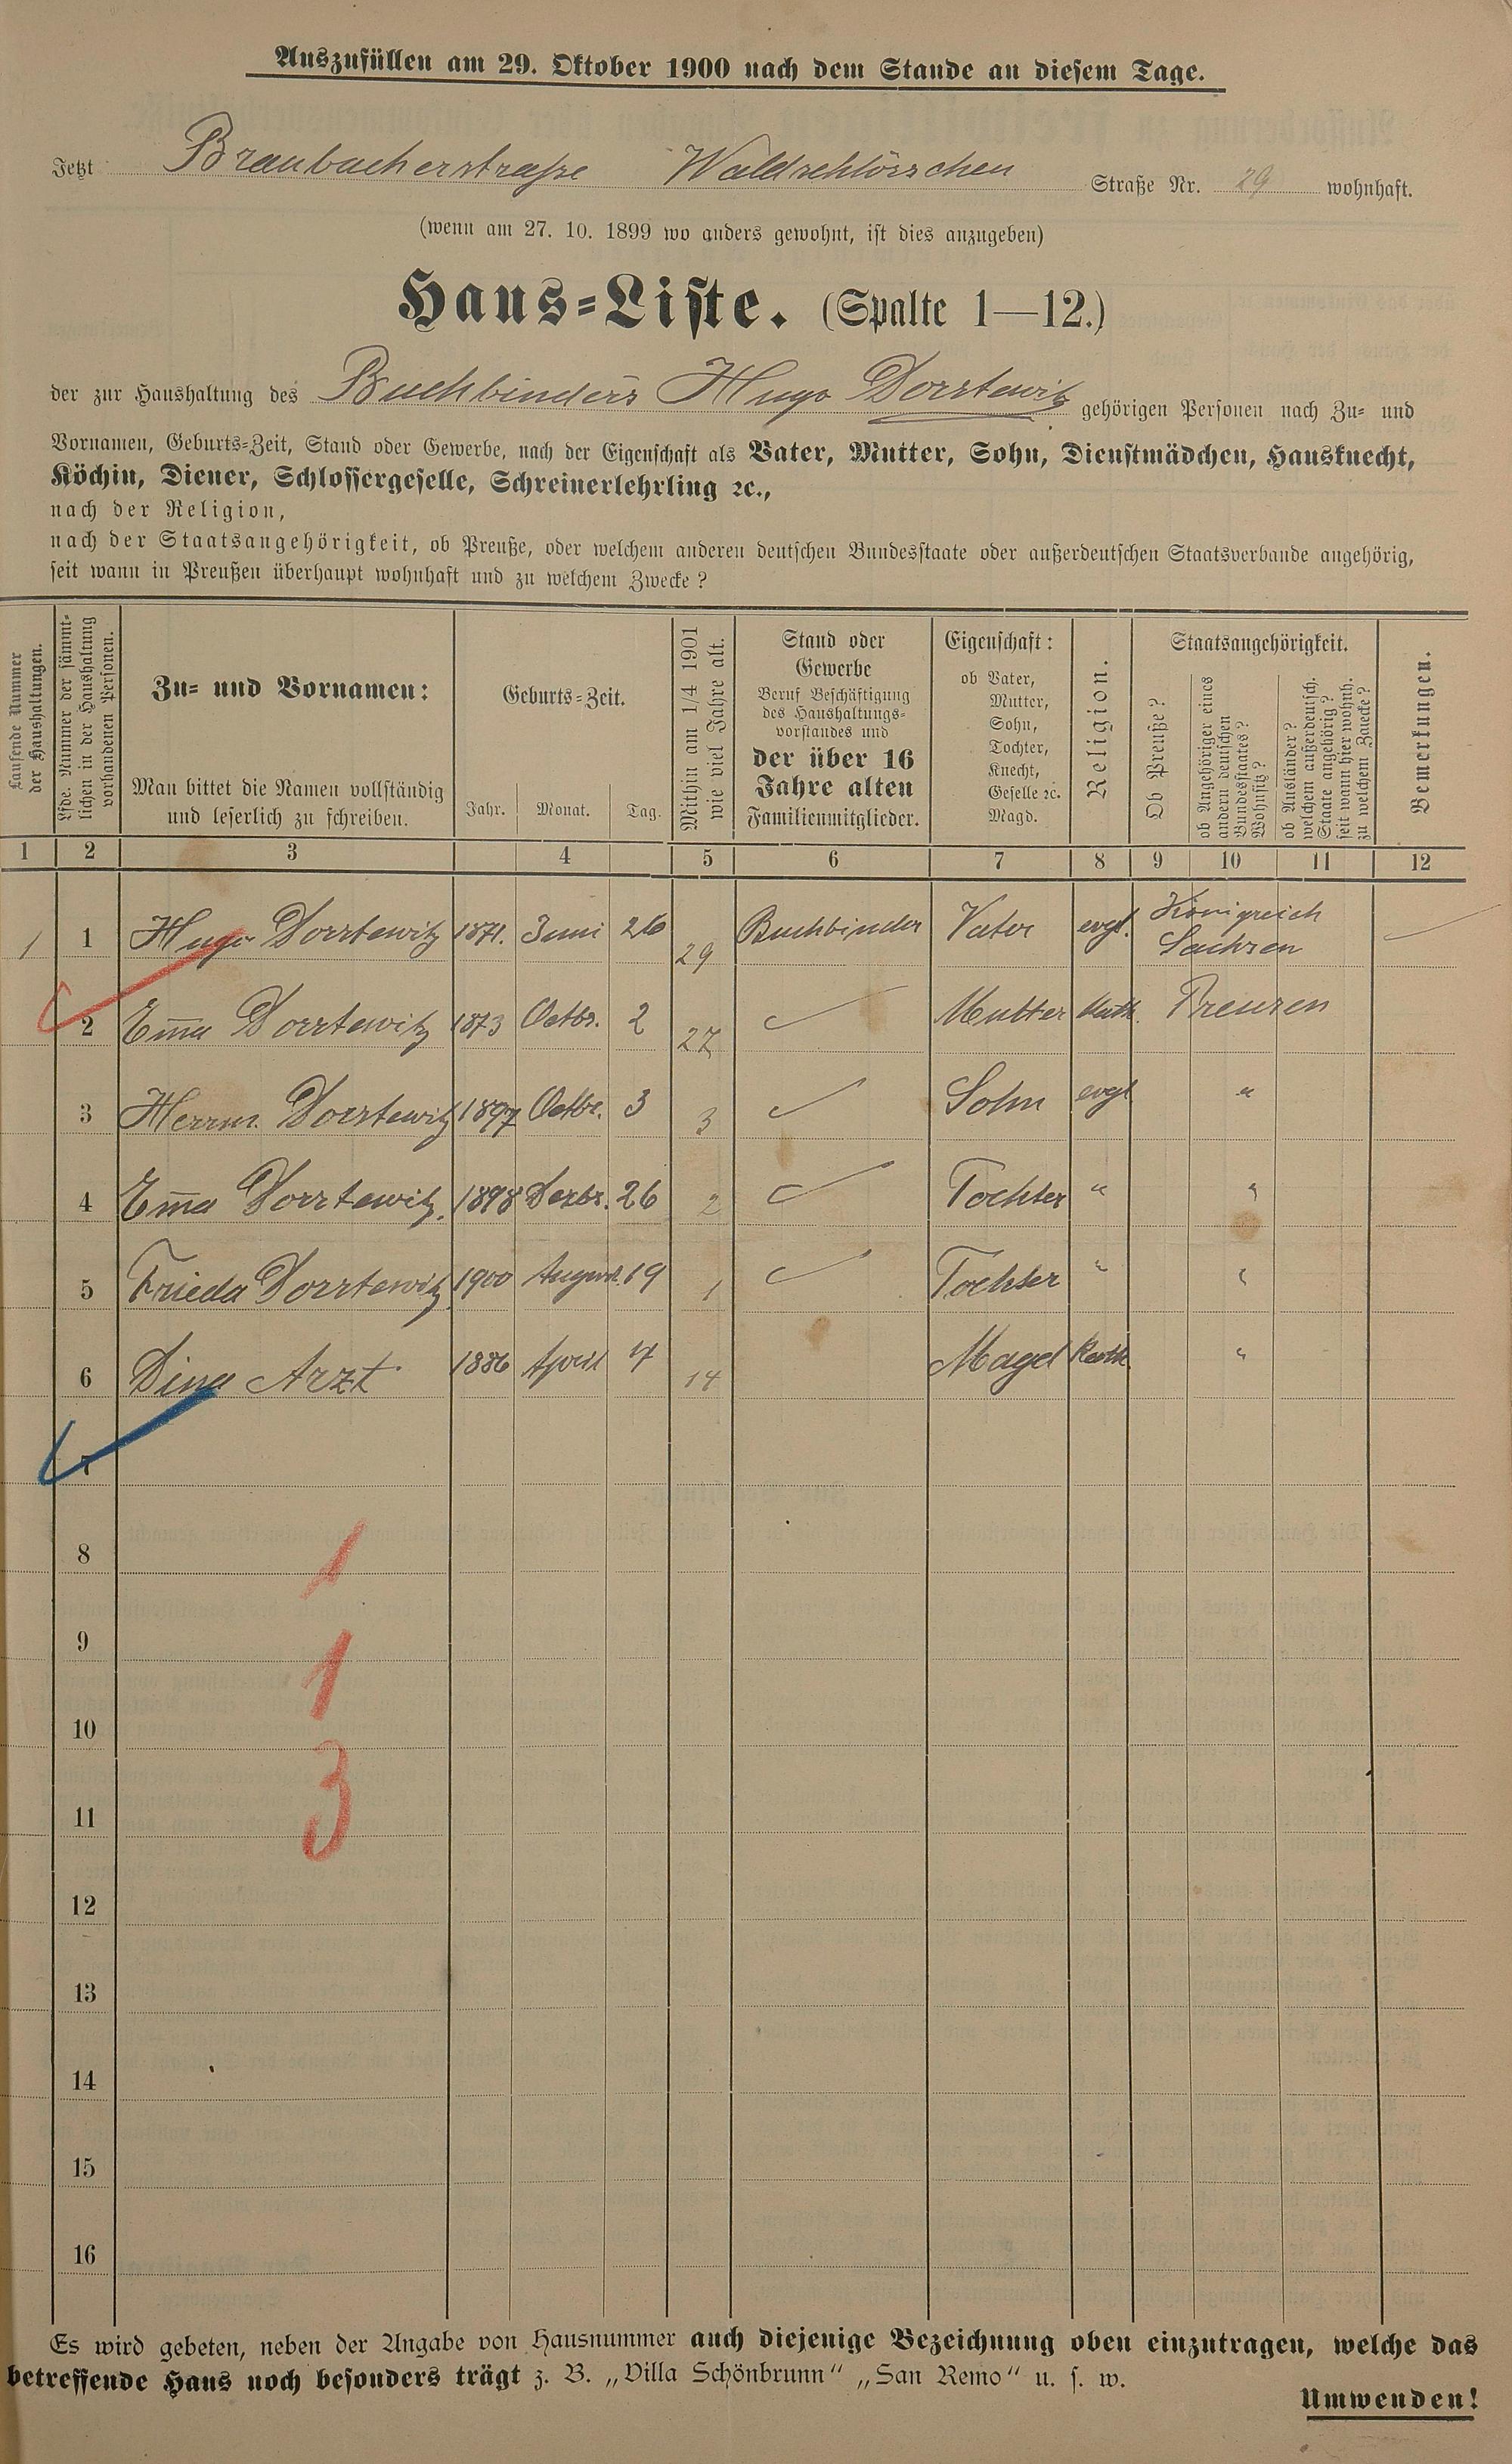 Auszufüllen am 29. Oktober 1900 nach dem Stande an diesem Tage.
Jetzt Braubacherstraße Waldschlösschen Straße Nr. 29 wohnhaft.
(wenn am 27. 10. 1899 wo anders gewohnt, ist dies anzugeben)
Haus-Liste. (Spalte 1—12.)
der zur Haushaltung des Buchbinders Hugo Dorstewitz gehörigen Personen nach Zu- und
Vornamen, Geburts-Zeit, Stand oder Gewerbe, nach der Eigenschaft als Vater, Mutter, Sohn, Dienstmädchen, Hausknecht,
Köchin, Diener, Schlossergeselle, Schreinerlehrling ꝛc.,
nach der Religion,
nach der Staatsangehörigkeit, ob Preuße, oder welchem anderen deutschen Bundesstaate oder außerdeutschen Staatsverbande angehörig,
seit wann in Preußen überhaupt wohnhaft und zu welchem Zwecke?
Laufende Nummer
der Haushaltungen.
Lfde. Nummer der sämmt-
lichen in der Haushaltung
vorhandenen Personen.
Zu- und Vornamen:
Man bittet die Namen vollständig
und leserlich zu schreiben.
Geburts-Zeit.
Jahr. Monat. Tag.
Mithin am 1/4 1901
wie viel Jahre alt.
Stand oder
Gewerbe
Beruf Beschäftigung
des Haushaltungs-
vorstandes und
der über 16
Jahre alten
Familienmitglieder.
Eigenschaft:
ob Vater,
Mutter,
Sohn,
Tochter,
Knecht,
Geselle ꝛc.
Magd.
Religion.
Staatsangehörigkeit.
Ob Preuße?
ob Angehöriger eines
andern deutschen
Bundesstaates?
Wohnsitz?
ob Ausländer?
welchem außerdeutsch.
Staate angehörig?
seit wann hier wohnh.
zu welchem Zwecke?
Bemerkungen.
1 2 3 4 5 6 7 8 9 10 11 12
1 1 Hugo Dorstewitz 1871. Juni 26 29 Buchbinder Vater evgl. Königreich
Sachsen
2 Em̅a Dorstewitz 1873 Octbr. 2 27 Mutter Kath. Preusen
3 Herrm. Dorstewitz 1897 Octbr. 3 3 Sohn evgl "
4 Em̅a Dorstewitz. 1898 Dezbr. 26 2 Tochter " "
5 Frieda Dorstewitz 1900 August. 19 1 Tochter " "
6 Dina Arzt 1886 April 4 14 Magd Kath. "
7
8 1
9 1
10
11 3
12
13
14
15
16
Es wird gebeten, neben der Angabe von Hausnummer auch diejenige Bezeichnung oben einzutragen, welche das
betreffende Haus noch besonders trägt z. B. „Villa Schönbrunn“ „San Remo“ u. s. w.
Umwenden!